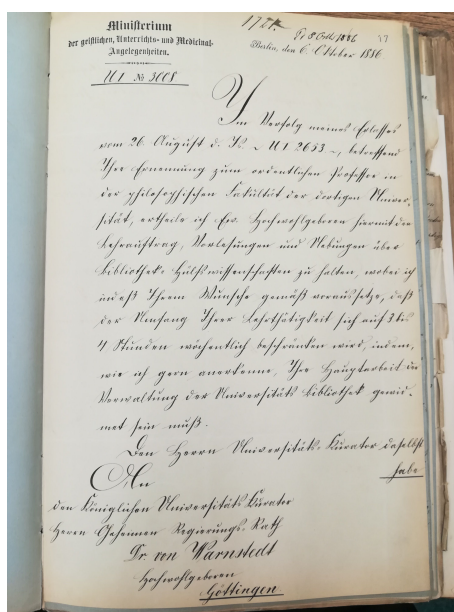 Ministerium
der geistlichen, Unterrichts- und Medicinal-
Angelegenheiten.
U I № 3008
Pr 8 Octb 1886
17
Berlin, den 6. Oktober 1886.
Im Verfolg meines Erlasses
vom 26. August d. Js. - U I 2653 -, betreffend
Ihre Ernennung zum ordentlichen Professor in
der philosophischen Fakultät der dortigen Univer-
sität, ertheile ich Ew. Hochwohlgeboren hiermit den
Lehrauftrag, Vorlesungen und Uebungen über
Bibliotheks-Hülfswissenschaften zu halten, wobei ich
indeß Ihrem Wunsche gemäß voraussetze, daß
der Umfang Ihrer Lehrthätigkeit sich auf 3 bis
4 Stunden wöchentlich beschränken wird, indem,
wie ich gern anerkenne, Ihre Hauptarbeit der
Verwaltung der Universitäts-Bibliothek gewid-
met sein muß.
Den Herrn Universitäts-Kurator daselbst
habe
An
den Königlichen Universitäts-Kurator
Herrn Geheimen Regierungs-Rath
Dr. von Warnstedt
Hochwohlgeboren
Göttingen